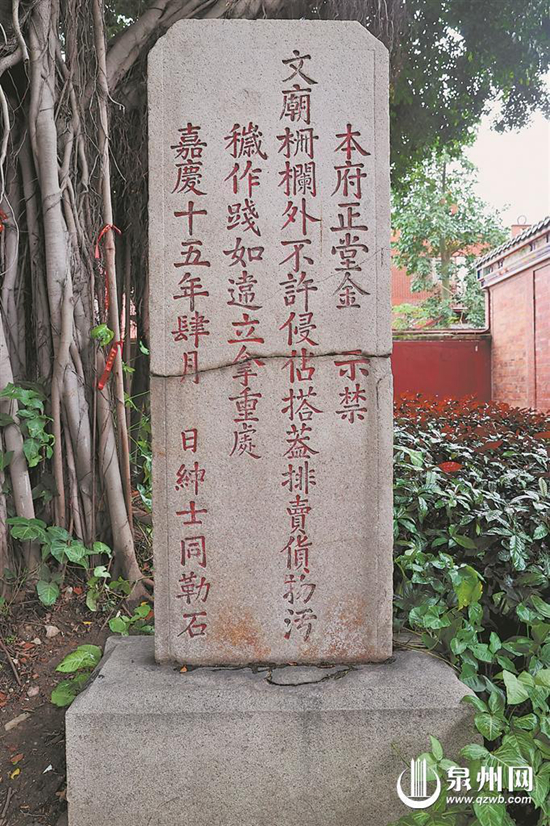 本府正堂金 示禁
文廟柵欄外不許侵佔搭蓋排賣貨物污
穢作踐如違立拿重處
嘉慶十五年肆月 日紳士同勒石
泉州网
www.qzwb.com